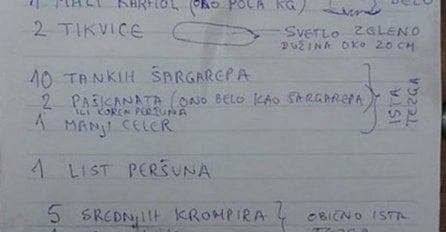 1 MALI KARFIOL (OKO POLA KG) BELO
2 TIKVICE SVETLO ZELENO
DUŽINA OKO 20 CM
10 TANKIH ŠARGAREPA
2 PAŠKANATA (ONO BELO KAO ŠARGAREPA)
ILI KOREN PERŠUNA
1 MANJI CELER
ISTA
TEZGA
1 LIST PERŠUNA
5 SREDNJIH KROMPIRA OBIČNO ISTA
TEZGA